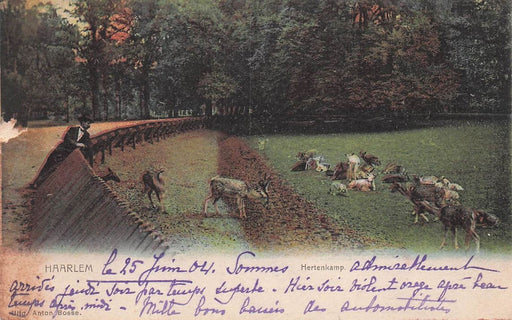 HAARLEM
Hertenkamp.
le 25 Juin 04. Sommes admirablement
arrivés jeudi soir par temps superbe - Hier soir violent orage apr. beau
temps après-midi - Mille bons baisers des automobilistes
Uitg. Anton Bosse.